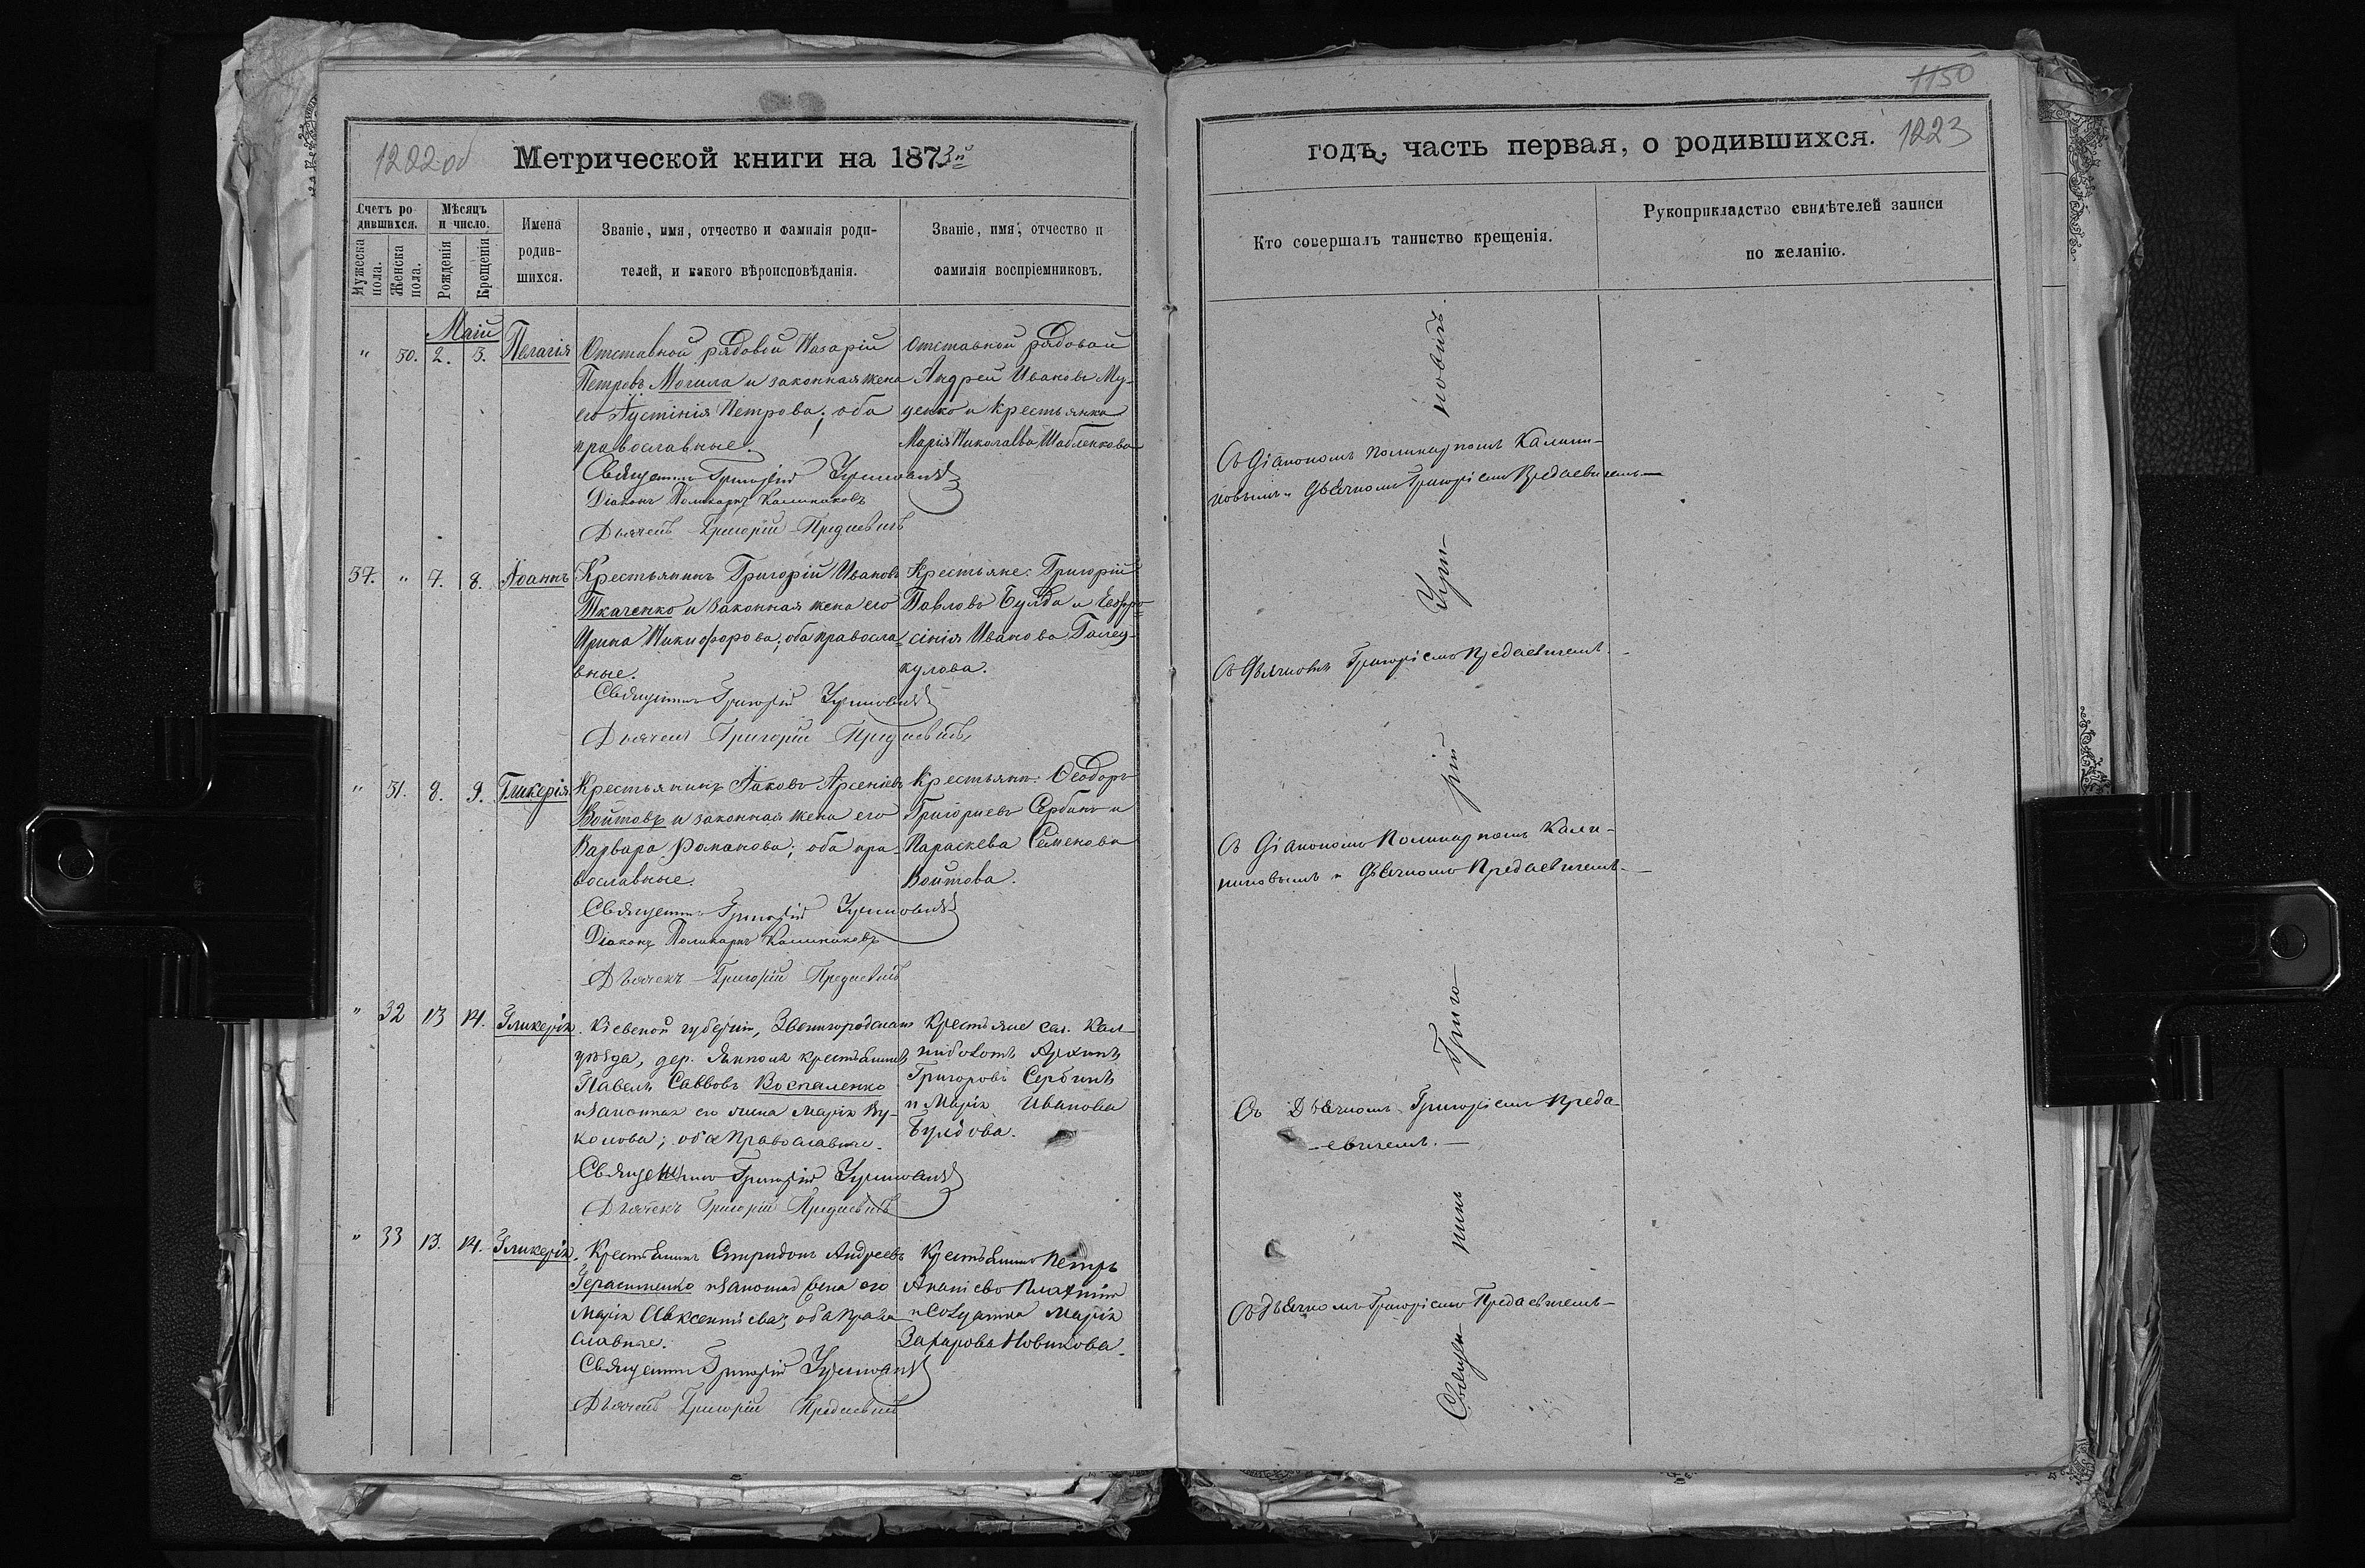 1222 об
Метрической книги на 1873й
Счетъ ро
дившихся.
Мѣсяцъ
и число.
Мужеска
пола.
Женска
пола.
Рожденія
Крещенія
Имена
родив-
шихся.
Званіе, имя, отчество и фамилія роди-
телей, и какого вѣроисповѣданія.
Званіе, имя, отчество и
фамилія воспріемниковъ.
Маій
" 30. 2. 3. Пелагія
Отставной рядовой Назарій
Петровъ Могила и законная жена
его Іустінія Петрова; оба
православные.
Отставной рядовой
Андрей Ивановъ Му-
ценко и крестьянка
Марія Николаева Шабленкова
Священникъ Григорій
Діаконъ Поликарпъ Калиниковъ
Дьячекъ Григорій Предаевичъ
37. " 7. 8. Іоаннъ
Крестьянинъ Григорій Ивановъ
Ткаченко и законная жена его
Ирина Никифорова; оба правосла-
вные.
Крестьяне: Григорій
Павловъ Булда и Евфро-
сінія Иванова
кулова.
Священникъ Григорій
Дьячекъ Григорій Предаевичъ
" 31. 8. 9. Гликерія
Крестьянинъ Іаковъ Арсеніевъ
Войтовъ и законная жена его
Варвара Романова; оба пра-
вославные.
Крестьян: Ѳеодоръ
Григориевъ Сербинъ и
Параскева Семенова
Войтова.
Священникъ Григорій
Діаконъ Поликарпъ Калиниковъ
Дьячекъ Григорій Предаевичъ
" 32 13 14. Гликерія.
Кіевской губерніи, Звенигородскаго
уѣзда, дер. крестьянинъ
Павелъ Саввовъ Воспаленко
и законная его жена Марія Ву-
колова; оба православные.
Крестьяне сел. Кал-
Архипъ
Григоровъ Сербинъ
и Марія Иванова
Булдова.
Священникъ Григорій
Дьячекъ Григорій Предаевичъ
" 33 13. 14. Гликерія.
Крестьянинъ Спиридонъ Андреевъ
Герасименко и законная жена его
Марія Авксентіева; оба право
славные.
Крестьянинъ Петръ
Ананіевъ
и солдатка Марія
Захарова Новикова.
Священникъ Григорій
Дьячекъ Григорій Предаевичъ
1150
годъ, часть первая, о родившихся. 1223
Кто совершалъ таинство крещенія.
Рукоприкладство свидѣтелей записи
по желанію.
Съ Діакономъ Поликарпомъ Калини-
ковымъ и Дьячкомъ Григоріемъ Предаевичемъ
Съ Дьячкомъ Григоріемъ Предаевичемъ.
Съ Діакономъ Поликарпомъ Кали-
никовымъ и Дьячкомъ Предаевичемъ.
Съ Дьячкомъ Григоріемъ Преда
-евичемъ.
Съ Дьячкомъ Григоріемъ Предаевичемъ
Священ- никъ Григо- рій